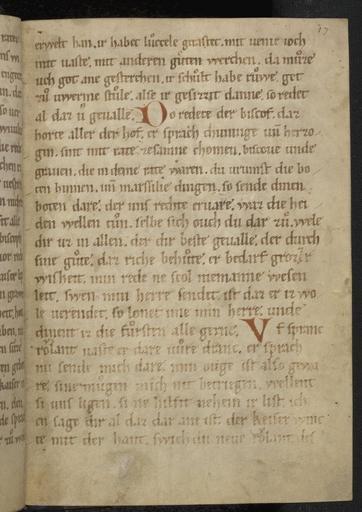 17
erwelt han. ir habet luccele gerastet. mit ueme ioch
mit uaste. mit anderen guten werchen. da mûze
uch got ane gesterchen. ir schult habe růwe. get
zů uwerme stůle. alse ir gesizzit danne. so redet
al daz ů geualle. Do redete der biscof. daz
horte aller der hof. er sprach chuninge un herzo¬
gin. sint mit rate zesamne chomen. biscoue unde
grauen. die in deine rate waren. du urumist die bo¬
ten hinnen. un marssilie dingen. so sende dinen
boten dare. der uns rechte eruare. waz die hei¬
den wellen tůn. selbe sich ouch du dar zů. wede
dir uz in allen. der dir beste geualle. der durch
sine gůte. daz riche behůte. er bedarf grozer
wisheit. min rede ne scol niemanne wesen
leit. swen min herre sendet. ist daz er iz wo
le uerendet. so lonet ime min herre. unde
dinent iz die fůrsten alle gerne. Vf spranc
růlant uaste er dare uůre dranc. er sprach
nu sende mich dare. min ouge ist also gewa
re. sine mugen mich nit betriegen. wellent
si uns ligen. si ne hilfit nehein ir list. ich
en sage dir al daz dar ane ist. der keiser winc
te mit der hant. swich du neue růlant. des